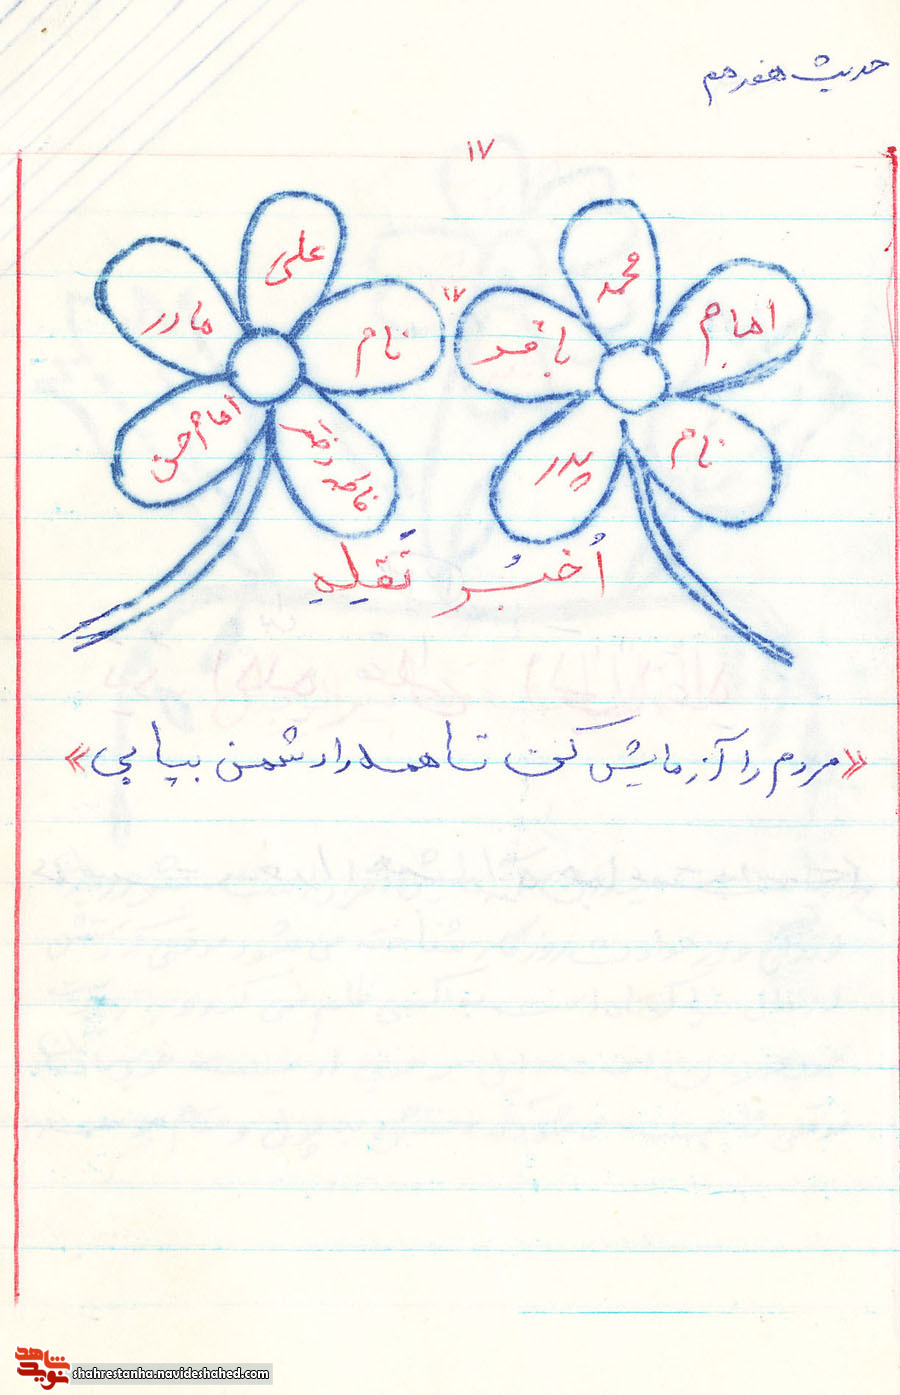 حدیث هفدهم
۱۷
محمد
امام
باقر
نام
پدر
۱۷
علی
مادر
نام
امام حسن
فاطمه دختر
اُخبُر تَقلِهِ
«مردم را آزمایش کن تا همه را دشمن بیابی»
شاهد
نوید
shahrestanha.navideshahed.com